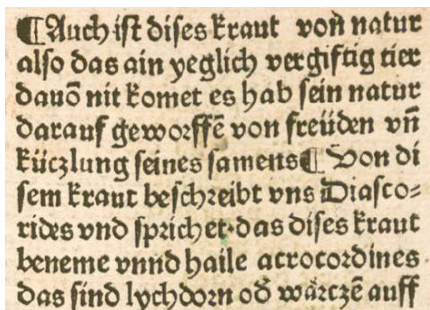 ¶Auch ist dises kraut von̄ natur
also das ain yeglich vergiftig tier
dauō nit komet es hab sein natur
darauf geworffē von freüden vn̄
küczlung seines samens¶ Von di
sem kraut beschreibt vns Diasco⸗
rides vnd sprichet·das dises kraut
beneme vnnd haile acrocordines
das sind lychdorn od̄ waͤrczē auff